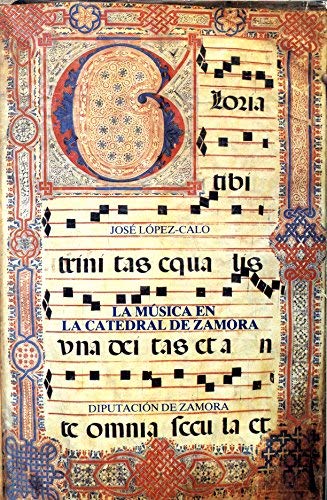 Gloria
tibi
JOSÉ LÓPEZ-CALO
trini tas equa lis
LA MÚSICA EN
LA CATEDRAL DE ZAMORA
vna dei tas et a n
DIPUTACIÓN DE ZAMORA
te omnia secu la et